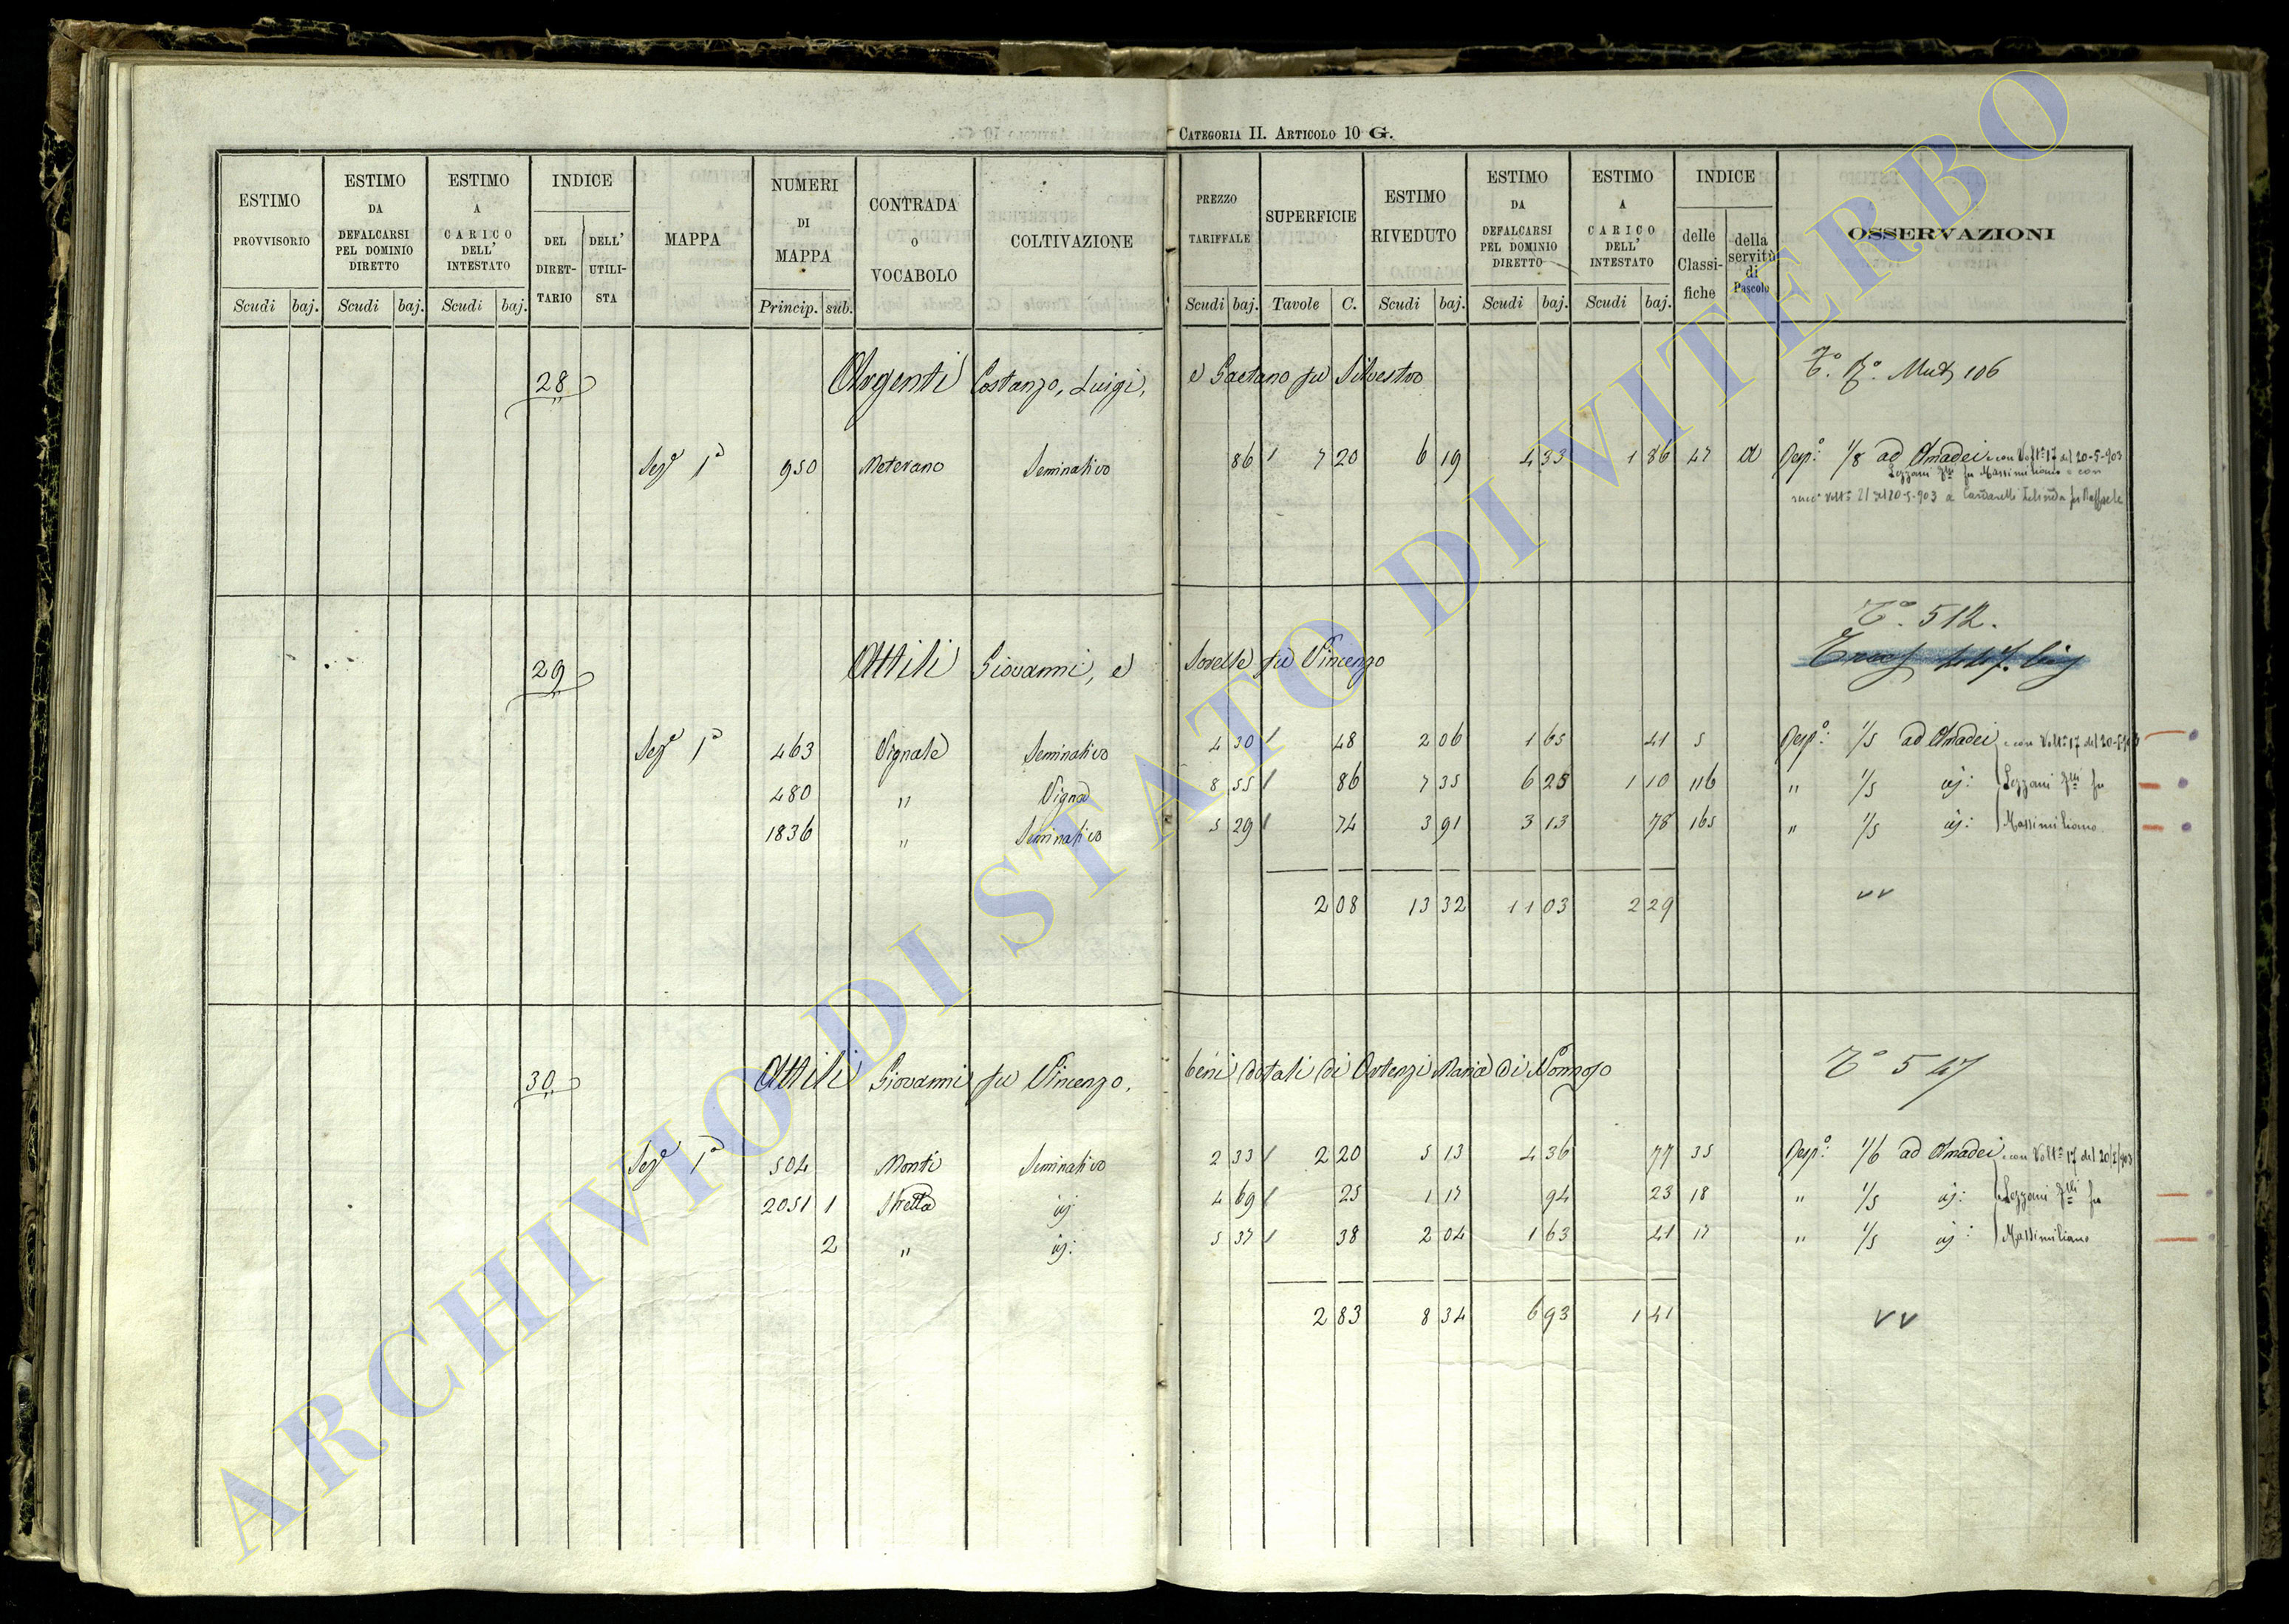 CATEGORIA II. ARTICOLO 10 G.
ESTIMO PROVVISORIO Scudi baj.
ESTIMO DA DEFALCARSI PEL DOMINIO DIRETTO Scudi baj.
ESTIMO A CARICO DELL' INTESTATO Scudi baj.
INDICE DEL DIRETTARIO DELL' UTILISTA
MAPPA
NUMERI DI MAPPA Princip. sub.
CONTRADA O VOCABOLO
COLTIVAZIONE
PREZZO TARIFFALE Scudi baj.
SUPERFICIE Tavole C.
ESTIMO RIVEDUTO Scudi baj.
ESTIMO DA DEFALCARSI PEL DOMINIO DIRETTO Scudi baj.
ESTIMO A CARICO DELL' INTESTATO Scudi baj.
INDICE delle Classifiche della servitù di Pascolo
OSSERVAZIONI
28 Argenti Costanzo, Luigi, e Gaetano fu Silvestro 106
Sez.e 1a 950 Meterano Seminativo 86 7 20 6 19 4 33 1 86 47 a Resp.o 1/8 ad Amadei e con Volt.a 17 del 20-5-903
Lezzani F.lli fu Massimiliano e con
29 Attili Giovanni, e Sorelle fu Vincenzo T.o 512.
Sez.e 1a 463 Vignale Seminativo 4 30 48 2 06 1 65 41 5 Resp.o: 1/5 ad Amadei e con Volt.a 17 del 20-5-903
480 " Vigna 8 55 86 7 35 6 25 1 10 116 " 1/5 id: Lezzani F.lli fu
1836 " Seminativo 5 29 74 3 91 3 13 78 165 " 1/5 id: Massimiliano
2 08 13 32 11 03 2 29 vv
30 Attili Giovanni fu Vincenzo, beni dotali di Ortenzi Maria di Nonnoso T.o 547
Sez.e 1a 504 Monti Seminativo 2 33 2 20 5 13 4 36 77 35 Resp.o: 1/6 ad Amadei e con Volt.a 17 del 20/5/903
2051 1 Stretta id 4 69 25 1 17 94 23 18 " 1/5 id: Lezzani F.lli fu
2 " id: 5 37 38 2 04 1 63 41 17 " 1/5 id: Massimiliano
2 83 8 34 6 93 1 41 vv
ARCHIVIO DI STATO DI VITERBO